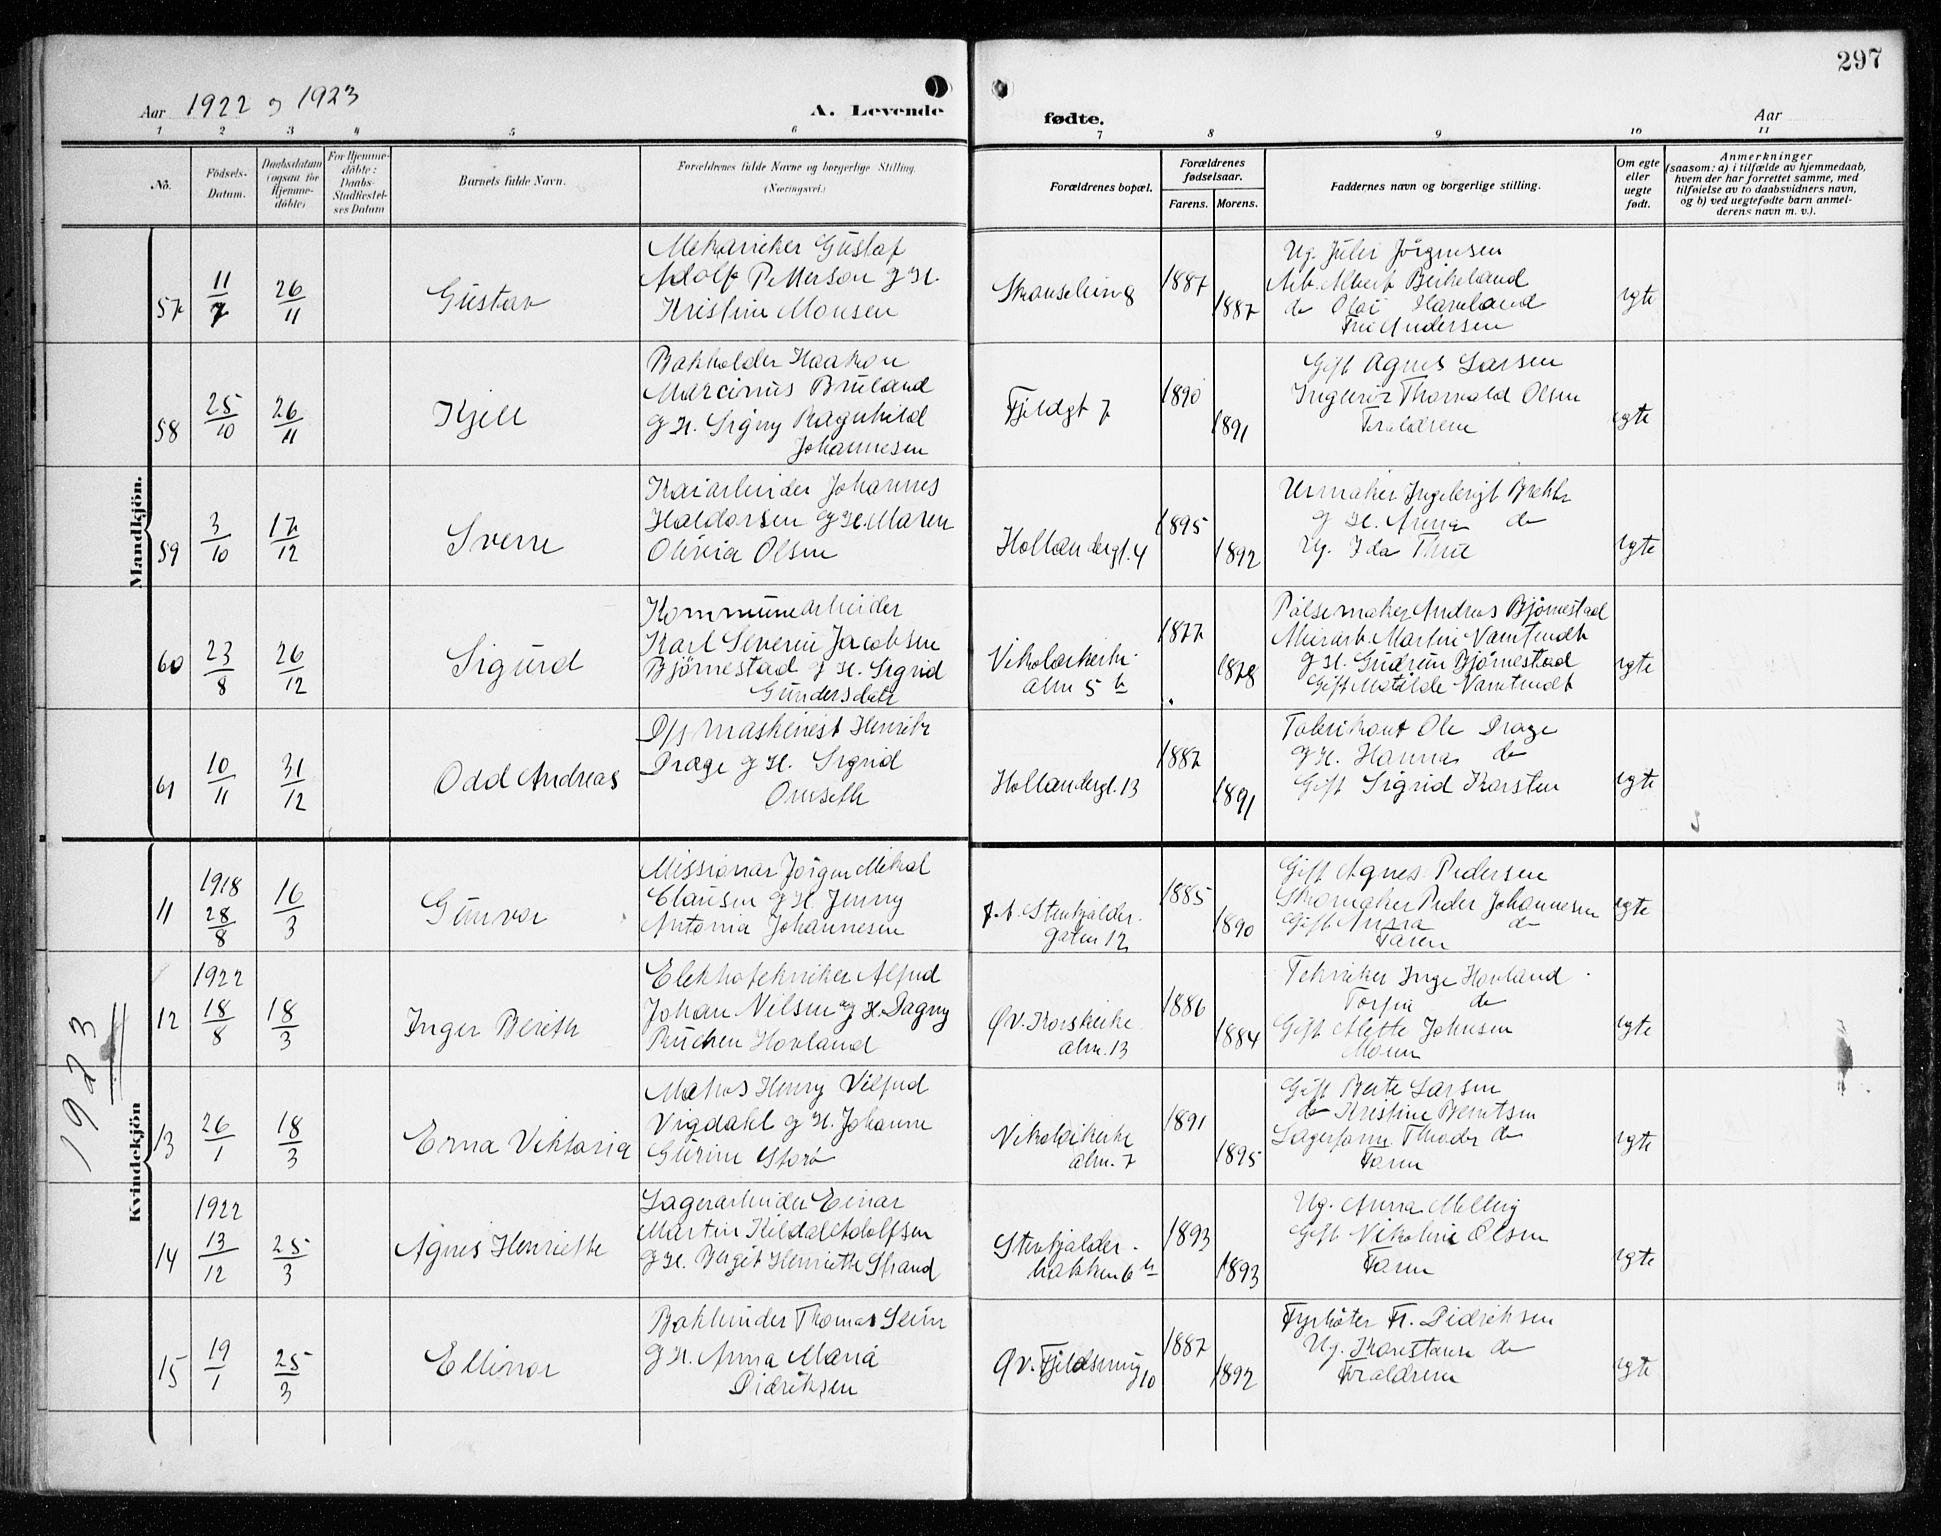 297
Aar 1922 og 1923
A. Levende fødte.
Aar
1 2 3 4 5 6 7 8 9 10 11
No.
Födsels-Datum.
Daabsdatum (ogsaa for Hjemme-döbte)
For Hjemme-döbte: Daabs-Stadfæstel-ses Datum
Barnets fulde Navn.
Forældrenes fulde Navne og borgerlige Stilling (Næringsvei.)
Forældrenes bopæl.
Forældrenes fødselsaar.
Farens. Morens.
Faddernes navn og borgerlige stilling.
Om egte eller uegte født.
Anmerkninger
(saasom: a) i tilfælde av hjemmedaab,
hvem der har forrettet samme, med
tilføielse av to daabsvidners navn,
og b) ved uegtefødte barn anmel-
derens navn m. v.).
Mandkjön.
57 11/7 26/11 Gustav
Mekaniker Gustaf
Adolf Petterson g H.
Kristine Monsen
1887 1887
Ug. Julie Jörgensen
Arb. Albert Birkeland
do Olai Haveland
Fru Andersen
egte
58 25/10 26/11 Kjell
Bokholder Haakon
Marcinius Bruland
g H. Signy Ragnhild
Johannesen
Fjeldgt 7
1890 1891
Gift Agnes Larsen
Ingeniör Thorvald Olsen
Foreldrene
egte
59 3/10 17/12 Sverre
Kaiarbeider Johannes
Haldorsen g H. Maren
Olivia Olsen
Hollandergt. 4
1895 1892
Urmaker Ingebrigt Brekke
g H. Anna do
Ug. Ida Thue
egte
60 23/8 26/12 Sigurd
Kommunearbeider
Karl Severin Jacobsen
Bjørnestad g H. Sigrid
Gundersdatr
Nikolaikirke-
alm 5 b
1877 1878
Pölsemaker Andreas Bjørnestad
Murarb. Martin Namtvedt
g H. Gudrun Bjørnestad
Gift Matilde Namtvedt
egte
61 10/11 31/12 Odd Andreas
D/s Maskinist Henrik
Drage g H. Sigrid
Omseth
Hollandergt. 13
1887 1891
Fabrikant Ole Drage
g H. Hanna do
Gift Sigrid Karsten
egte
1923
Kvindekjön
11 1918 28/8 16/3 Gunvor
Missionær Jörgen Mikal
Clausen g H. Jenny
Antonia Johannesen
Stenkjelder-
gaten 12
1885 1890
Gift Agnes Pedersen
Skomaker Peder Johannesen
Gift Anna do
Faren
egte
12 1922 18/8 18/3 Inger Berith
Elektrotekniker Alfred
Johan Nilsen og H. Dagny
Hovland
Øv. Korskirke
alm. 13
1886 1884
Tekniker Inge Hovland
Torfin do
Gift Mette Johnsen
Moren
egte
13 26/1 18/3 Erna Viktoria
Henry Vilfred
Vigdahl g H. Johanne
Gurine Storø
Nikolaikirke
alm. 7
1891 1895
Gift Berte Larsen
do Kristine Berntsen
Lagerform. Theodor do
Faren
egte
14 1922 13/12 25/3 Agnes Henriette
Lagerarbeider Einar
Martin Kildal Adolfsen
g H. Bergit Henriette Strand
Stenkjelder-
bakken 6 b
1893 1893
Ug. Anna Melling
Gift Nikoline Olsen
Faren
egte
15 19/1 25/3 Ellinor
Bokbinder Thomas Seim
g H. Anna Maria
Didriksen
Øv. Fjeldsmug
10
1887 1892
Fyrböter Fr. Didriksen
Ug. Konstanse do
Foraldrene
egte